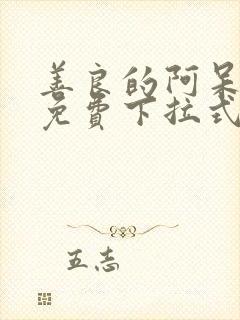 善良的阿呆
免费下拉式
五志